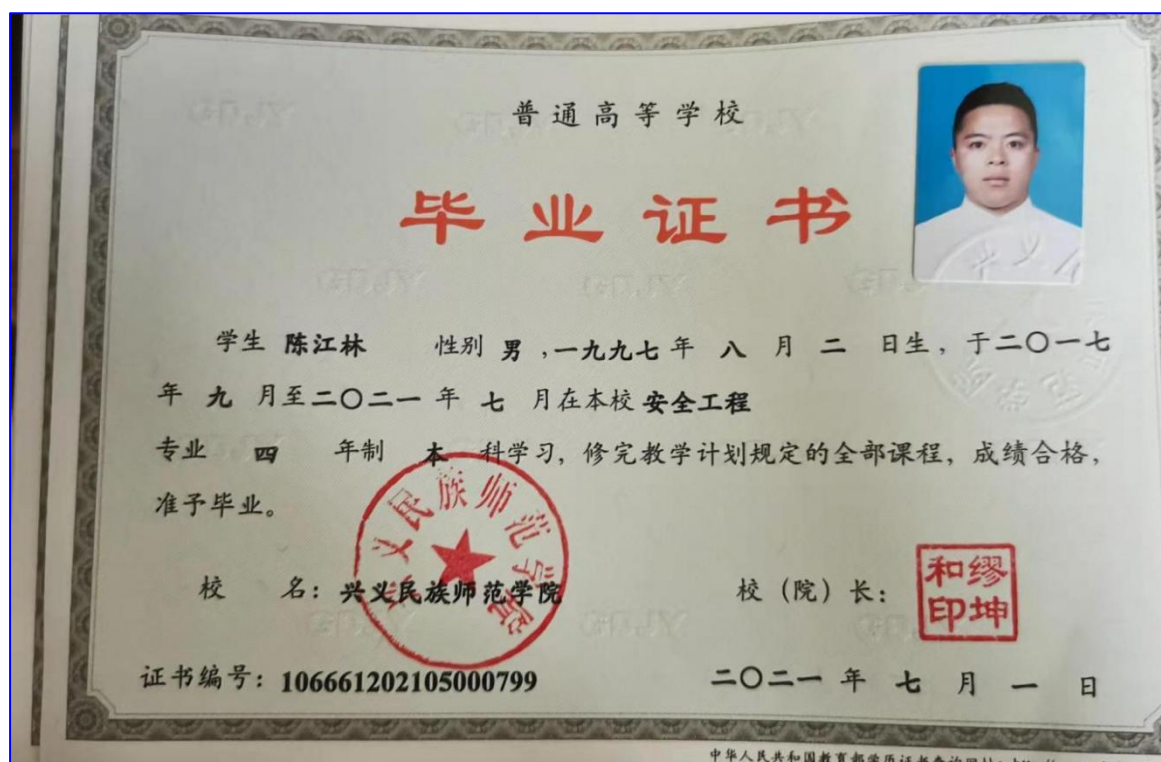 普通高等学校
毕业证书
学生 陈江林 性别 男 ,一九九七年 八 月 二 日生，于二〇一七
年 九 月至二〇二一 年 七 月在本校 安全工程
专业 四 年制 本 科学习，修完教学计划规定的全部课程，成绩合格，
准予毕业。
兴义民族师范学院
校 名：兴义民族师范学院 校（院）长：
和缪
印坤
证书编号：106661202105000799 二〇二一 年 七 月 一 日
中华人民共和国教育部学历证书查询网址：